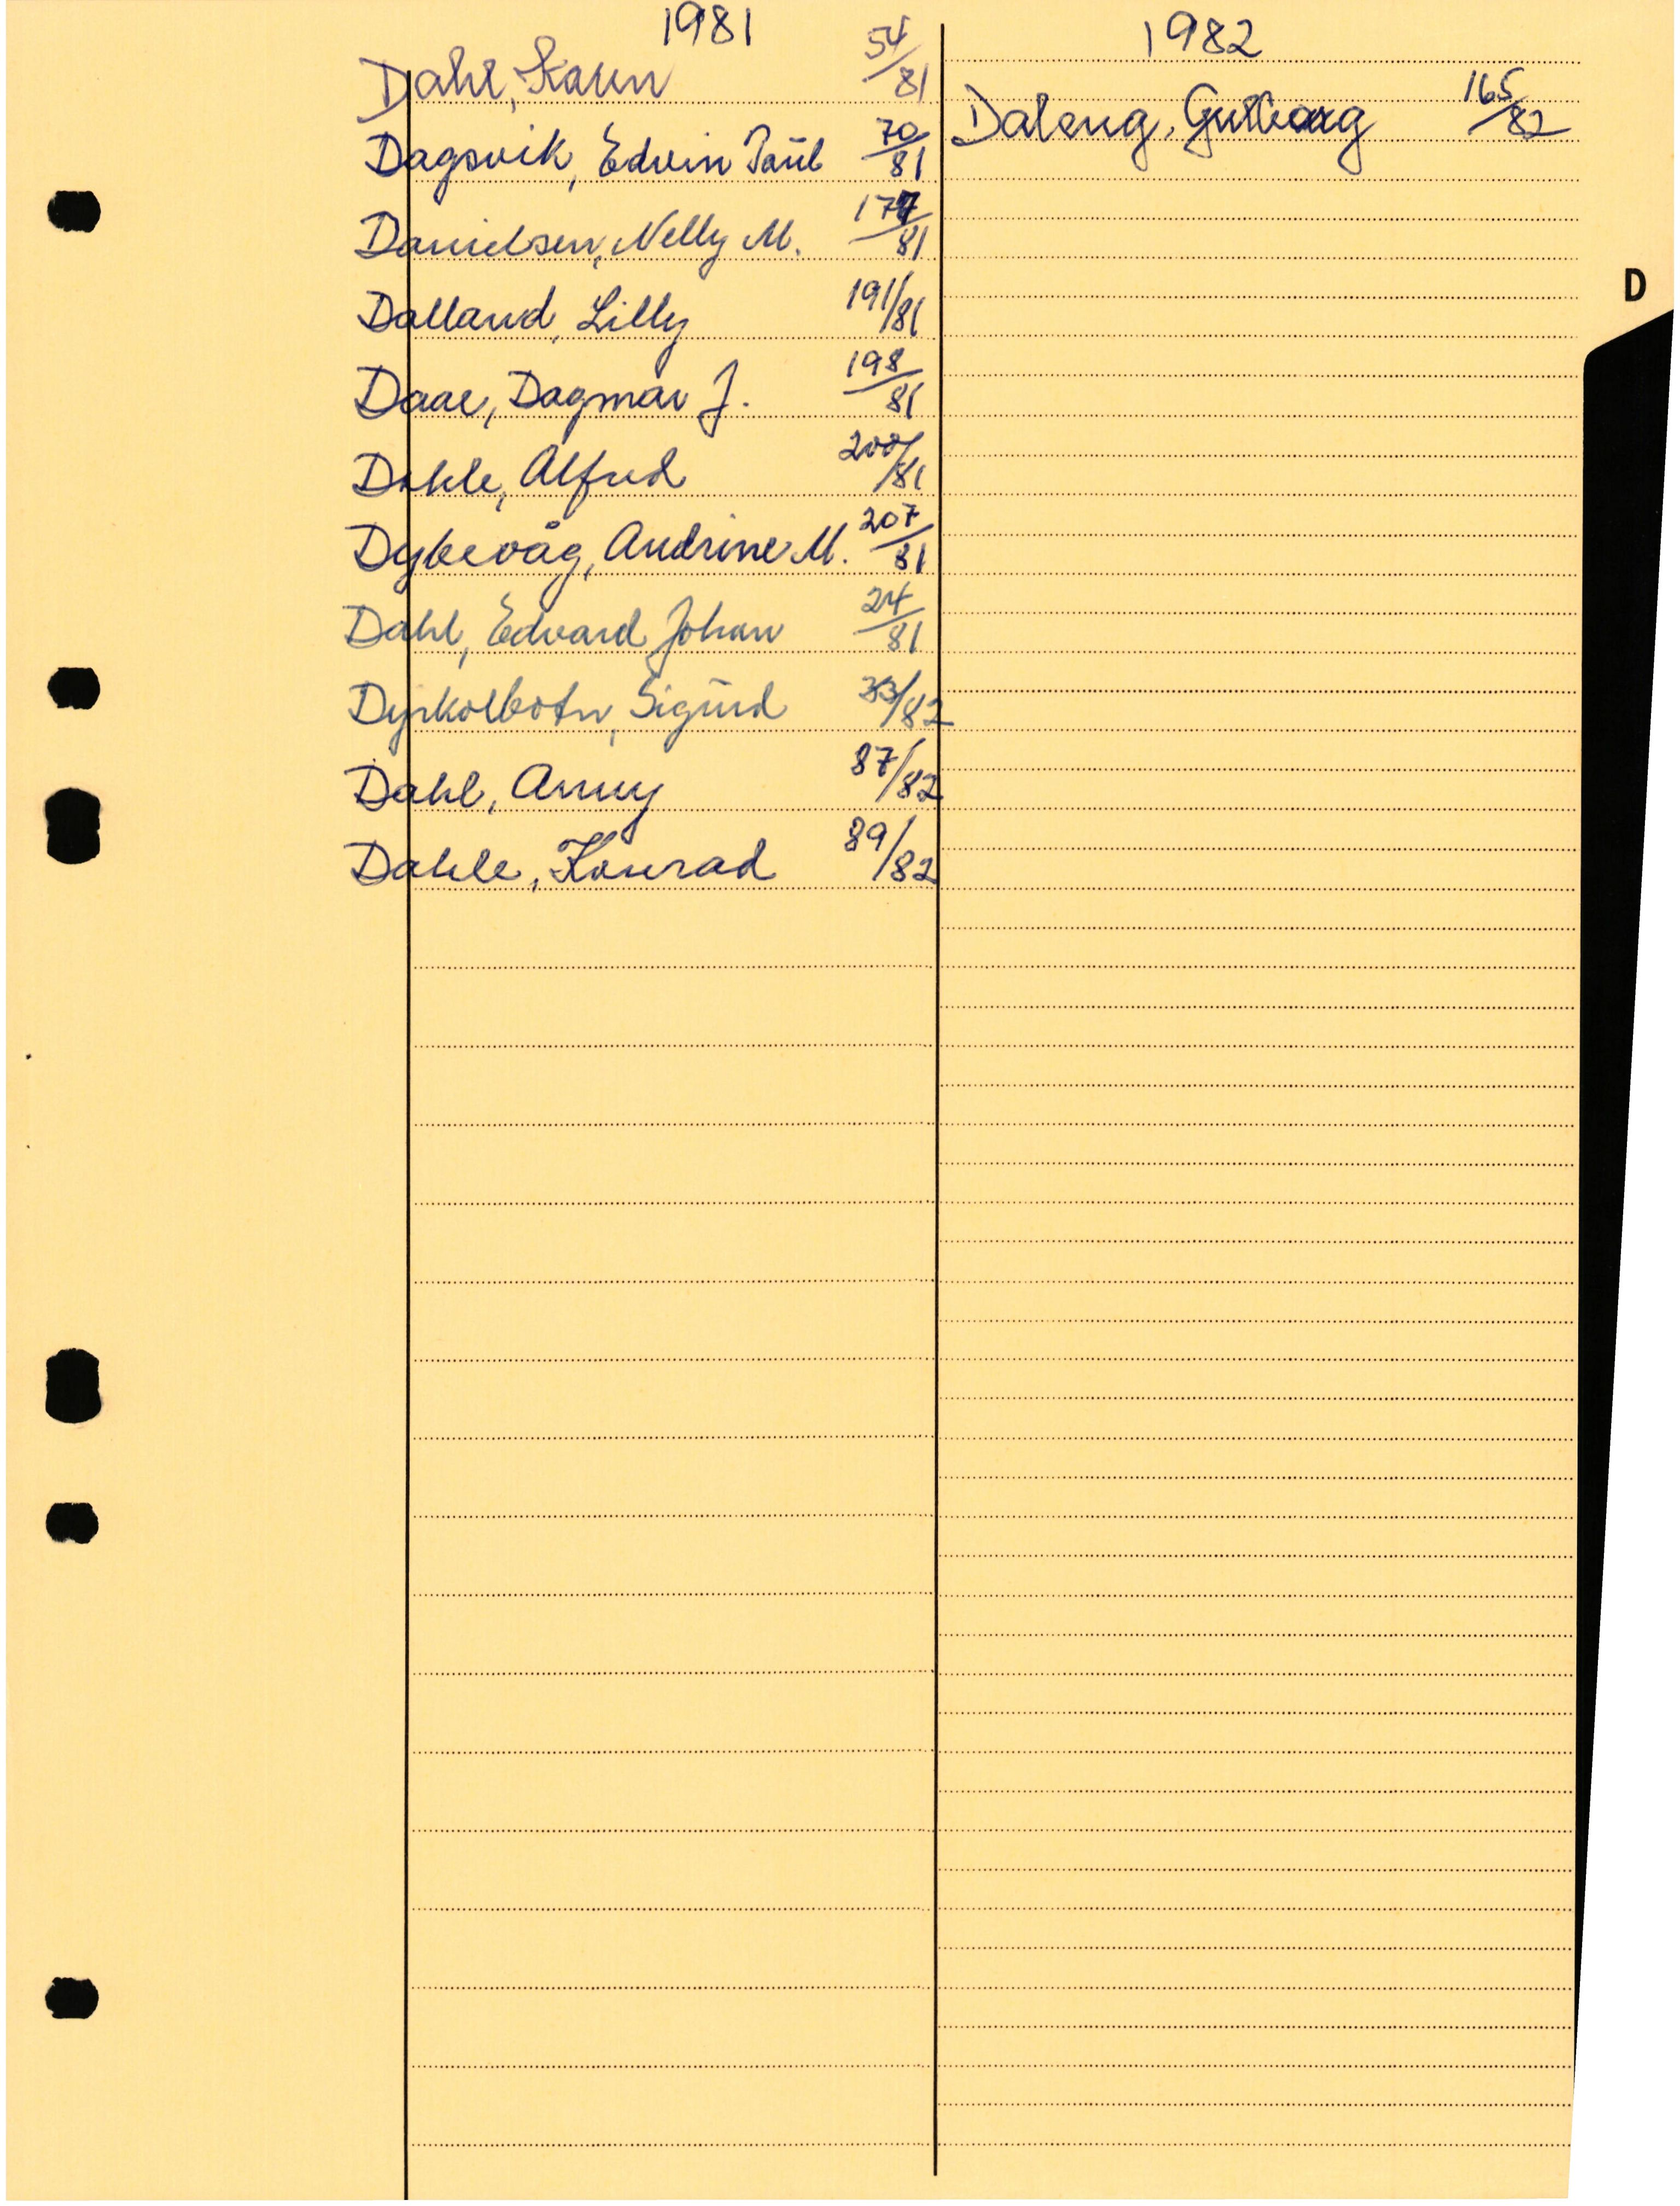 1981
Dahl, Karen 54/81
Dagsvik, Edvin Paul 70/81
Danielsen, Nelly M. 177/81
Dalland, Lilly 191/81
Daae, Dagmar J. 198/81
Dahle, Alfred 200/81
Dybevåg, Andrine M. 207/81
Dahl, Edvard Johan 24/81
Dyrkolbotn, Sigurd 33/82
Dahl, Anny 87/82
Dahle, Konrad 89/82
1982
Daleng, 165/82
D